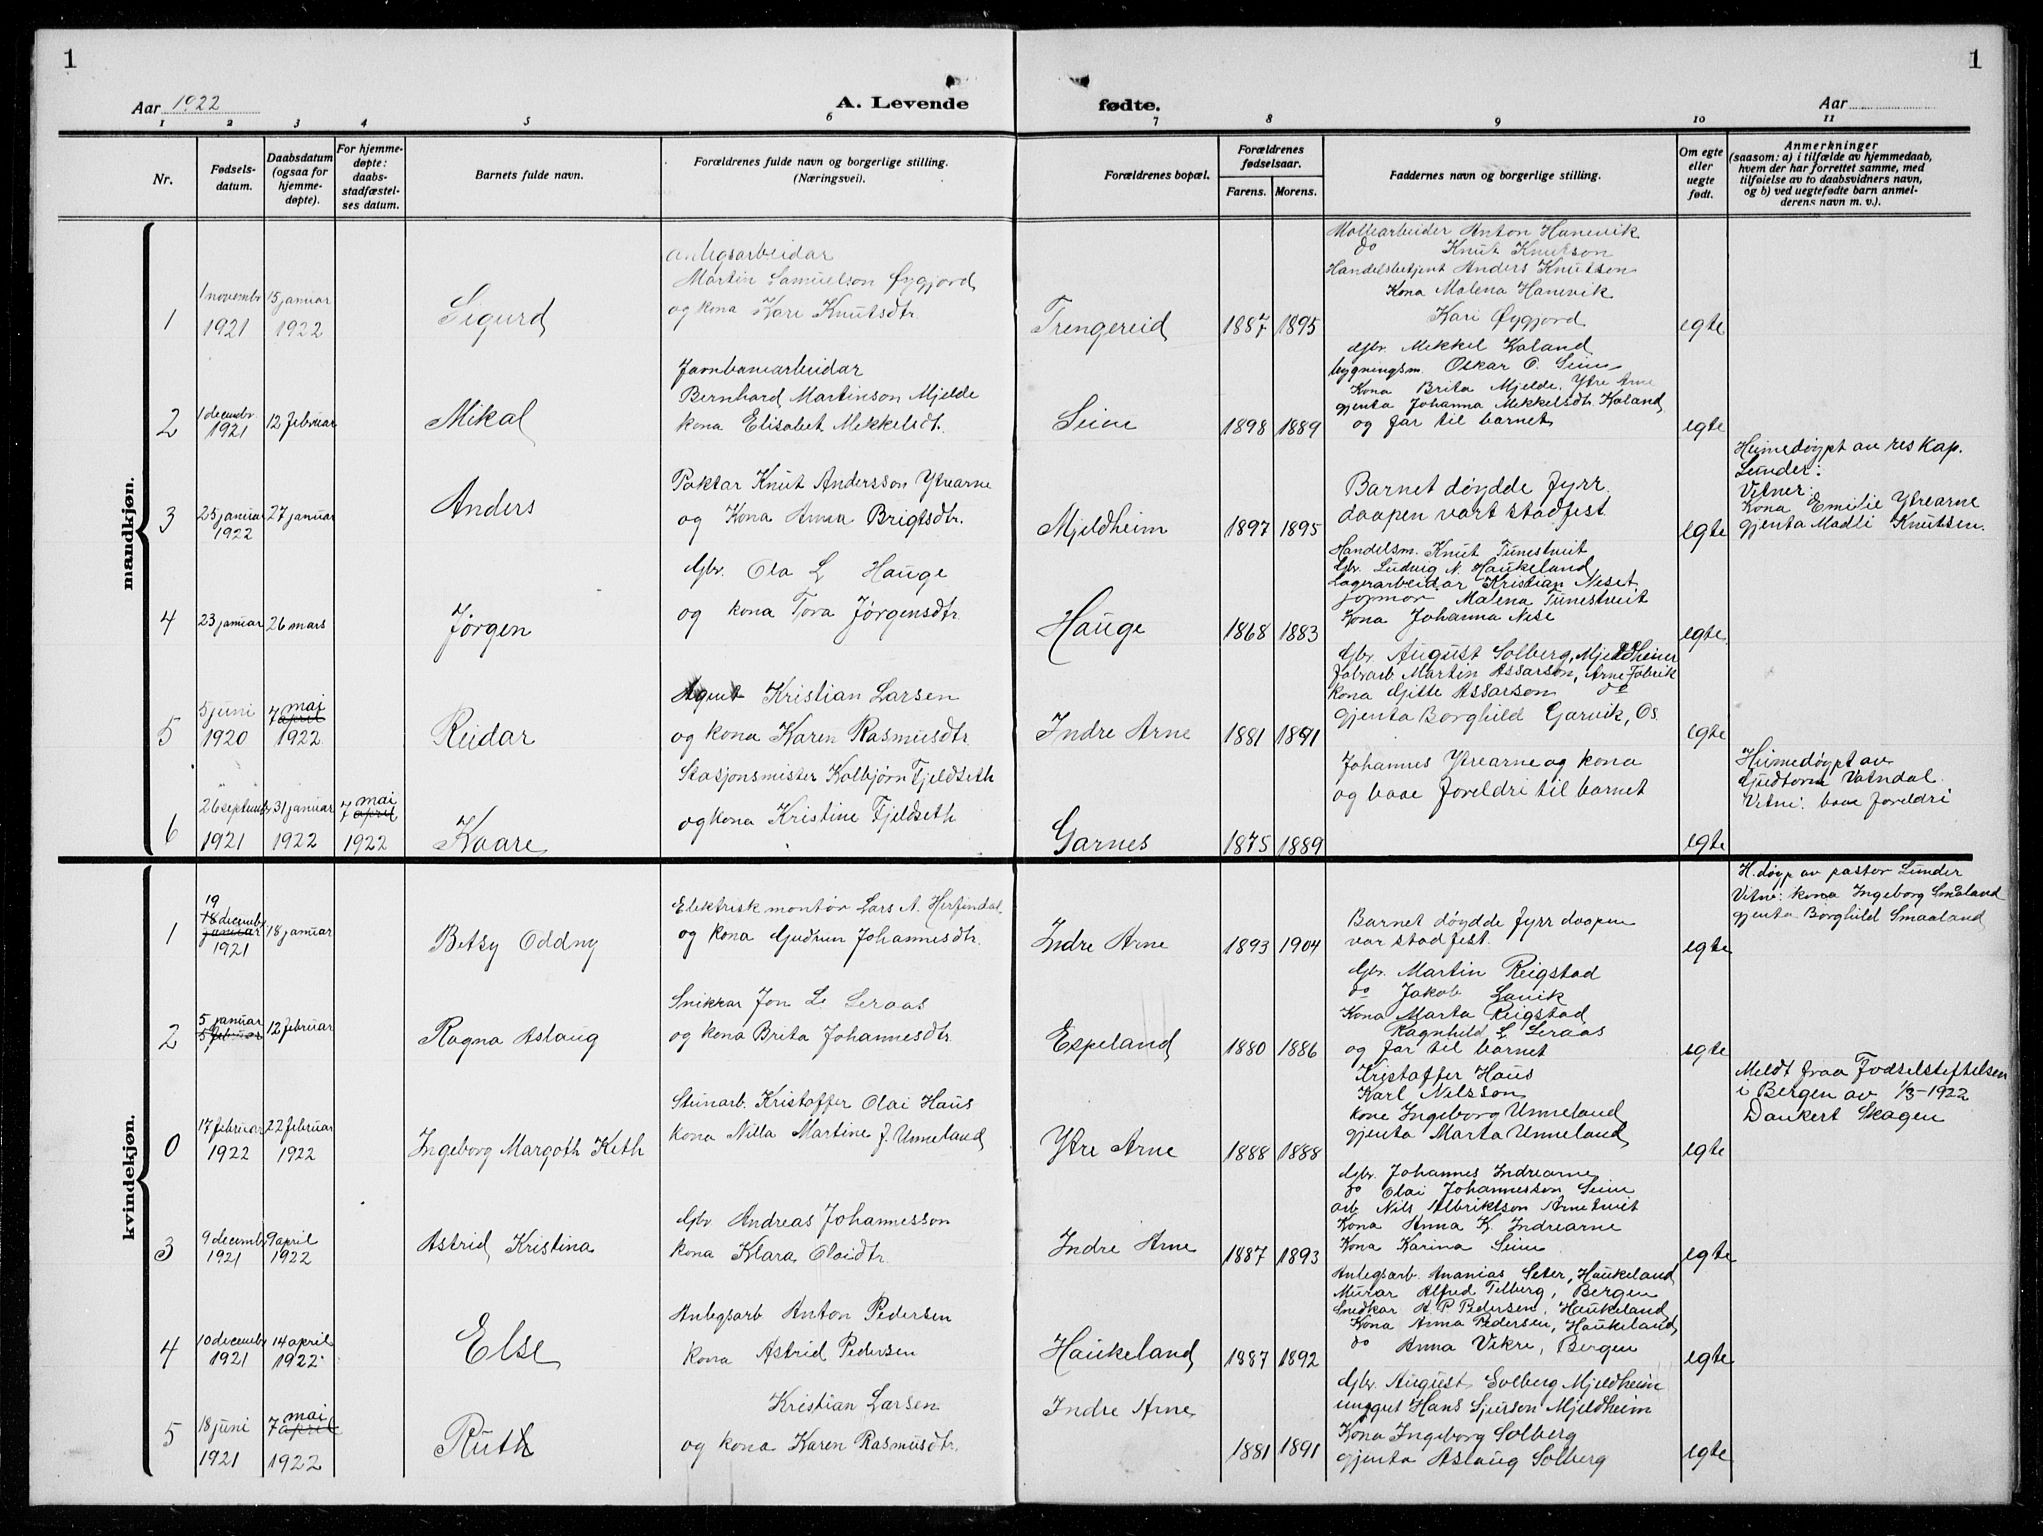 1
1
Aar 1922
A. Levende
fødte.
Aar
1 2 3 4 5 6 7 8 9 10 11
Nr.
Fødsels-
datum.
Daabsdatum
(ogsaa for
hjemme-
døpte).
For hjemme-
døpte:
daabs-
stadfæstel-
ses datum.
Barnets fulde navn.
Forældrenes fulde navn og borgerlige stilling.
(Næringsvei).
Forældrenes bopæl.
Forældrenes
fødselsaar.
Farens. Morens.
Faddernes navn og borgerlige stilling.
Om egte
eller
uegte
født.
Anmerkninger
(saasom: a) i tilfælde av hjemmedaab,
hvem der har forrettet samme, med
tilføielse av to daabsvidners navn,
og b) ved uegtefødte barn anmel-
derens navn m. v.).
mandkjøn.
1
1 novembr
1921
15 januar
1922
Sigurd
Anlegsarbeidar
Martin Samuelson Øygjord
og kona Kari Knutsdtr
Trengereid
1887 1895
Møllearbeider Anton Hanevik
do Knut Knutson
Handelsbetjent Anders Knutson
Kona Malena Hanevik
Kari Øygjord
egte
2
1 decembr.
1921
12 februar
Mikal
Jarnbanearbeidar
Bernhard Martinson Mjelde
kona Elisabet Mekkelsdt.
Seim
1898 1889
Gbr. Mekkel Kaland
bygningsm. Oskar O. Seim
Kona Brita Mjelde, Ytre Arne
gjenta Johanna Mekkelsdtr. Kaland
og far til barnet
egte
3
25 januar
1922
27 januar
Anders
Paktar Knut Andersson Ytrearne
og Kona Anna Brigtsdtr.
Mjeldheim
1897 1895
Barnet døydde fyrr
daapen vart stadfest
egte
Heimedøypt av res kap.
Lunder:
Vitner:
Kona Emilie Ytrearne
gjenta Madli Knutsen.
4
23 januar
26 mars
Jørgen
Gbr. Ola L Hauge
og kona Tora Jørgensdtr
Hauge
1868 1883
Handelsm. Knut Tunestveit
Gbr. Ludvig N. Haukeland
Lagerarbeidar Kristian Neset
jormor Malena Tunestveit
Kona Johanna Nese
egte
5
5 juni
1920
7 mai
april
1922
Reidar
Agent Kristian Larsen
og kona Karen Rasmusdtr.
Indre Arne
1881 1891
Gbr August Solberg, Mjeldheim
Fabrarb Martin Assarson, Arne Fabrik
Kona Gitle Assarson do
gjenta Borghild Garvik, Os
egte
6
26 septembr
1921
31 januar
1922
7 mai
april
1922
Kaare
Stasjonsmister Kolbjørn Fjeldseth
og kona Kristine Fjeldseth
Garnes
1875 1889
Johannes Ytrearne og kona
og baae foreldri til barnet
egte
Heimedøypt av
Gudtorm Vatndal
Vitni: baae foreldri
kvindekjøn.
1
19
18 decembr
januar
1921
18 januar
Betsy Oddny
Elektrisk montør Lars A. Herfindal
og kona Gudrun Johannesdtr.
Indre Arne
1893 1904
Barnet døydde fyrr daapen
var stadfest.
egte
H.døyp av pastor Lunder
Vitne: kona Ingeborg Smaaland
gjenta Borghild Smaaland
2
5 januar
5 februar
12 februar
Ragna Aslaug
Snikkar Jon L. Leraas
og kona Brita Johannesdtr.
Espeland
1880 1886
Gbr. Martin Reigstad
do Jakob Lavik
Kona Marta Reigstad
Ragnhild L. Leraas
og far til barnet
egte
0
17 februar
1922
22 februar
1922
Ingeborg Margoth Keth
Steinarb. Kristoffer Olai Haus
kona Nilla Martine J. Unneland
Ytre Arne
1888 1888
Kristoffer Haus
Karl Nilsson
kone Ingeborg Unneland
gjenta Marta Unneland
egte
Meldt fraa Fødselsteftelsen
i Bergen av 1/3-1922
Dankert Skagen
3
9 decembr
1921
9 april
1922
Astrid Kristina
Gbr Andreas Johannesson
kona Klara Olaidtr.
Indre Arne
1887 1893
Gbr. Johannes Indrearne
do Olai Johannesson Seim
arb Nils Albriktson Arnetveit
Kona Anna K. Indrearne
Kona Karina Seim
egte
4
10 decembr
1921
14 april
1922
Else
Anlegsarb Anton Pedersen
kona Astrid Pedersen
Haukeland
1887 1892
Anlegsarb. Ananias Seter, Haukeland
Murar Alfred Tilberg, Bergen
Snedkar A. P. Pedersen, Haukeland
Kona Anna Pedersen, Haukeland,
do Anna Vikre, Bergen
egte
5
18 juni
1921
7 mai
april
1922
Ruth
Kristian Larsen
og kona Karen Rasmusdtr.
Indre Arne
1881 1891
Gbr. August Solberg Mjeldheim
unggut Hans Sjurson Mjeldheim
Kona Ingeborg Solberg
gjenta Aslaug Solberg
egte